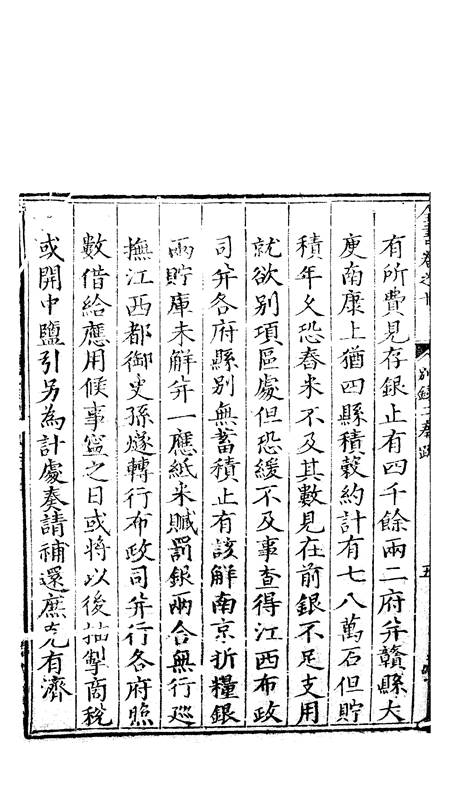 全書卷之十 別録二奏疏 五
有所費見存銀止有四千餘兩二府并贛縣大
庾南康上猶四縣積穀約計有七八萬石但貯
積年久恐舂米不及其數見在前銀不足支用
就欲别項區處但恐緩不及事查得江西布政
司并各府縣別無蓄積止有該解南京折糧銀
兩貯庫未解并一應紙米贓罰銀兩合無行巡
撫江西都御史孫燧轉行布政司并行各府照
數借給應用候事寧之日或將以後抽掣商稅
或開中鹽引另為計處奏請補還庶克有濟